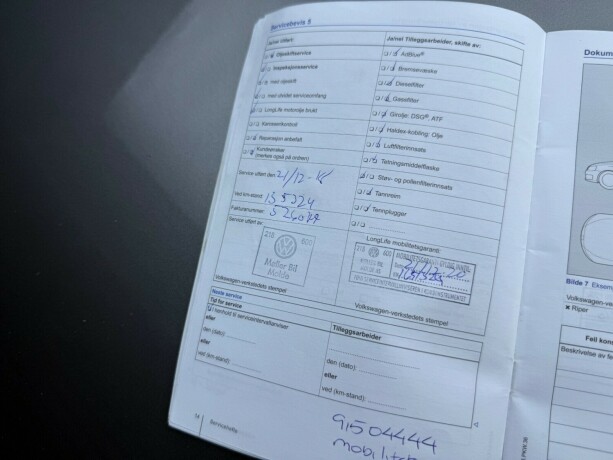 Servicebevis 5
Ja/nei Utført:
Oljeskiftservice
Inspeksjonsservice
med oljeskift
med utvidet serviceomfang
LongLife motorolje brukt
Karosserikontroll
Reparasjon anbefalt
Kundeønsker
(merkes også på ordren)
Service utført den
Ved km-stand:
Fakturanummer:
Service utført av:
218 600
Møller Bil
Molde
Volkswagen-verkstedets stempel
Ja/nei Tilleggsarbeider, skifte av:
AdBlue®
Bremsevæske
Dieselfilter
Gassfilter
Girolje: DSG®, ATF
Haldex-kobling: Olje
Luftfilterinnsats
Tetningsmiddelflaske
Støv- og pollenfilterinnsats
Tannreim
Tennplugger
LongLife mobilitetsgaranti:
218 600
Volkswagen-verkstedets stempel
Neste service
Tid for service
I henhold til serviceintervallanviser
eller
den (dato):
eller
ved (km-stand):
Tilleggsarbeider
den (dato):
eller
ved (km-stand):
91504444
14
Servicehefte
Dokum
Bilde 7 Eksemp
Volkswagen-ver
× Riper
Feil kon
Beskrivelse av fe